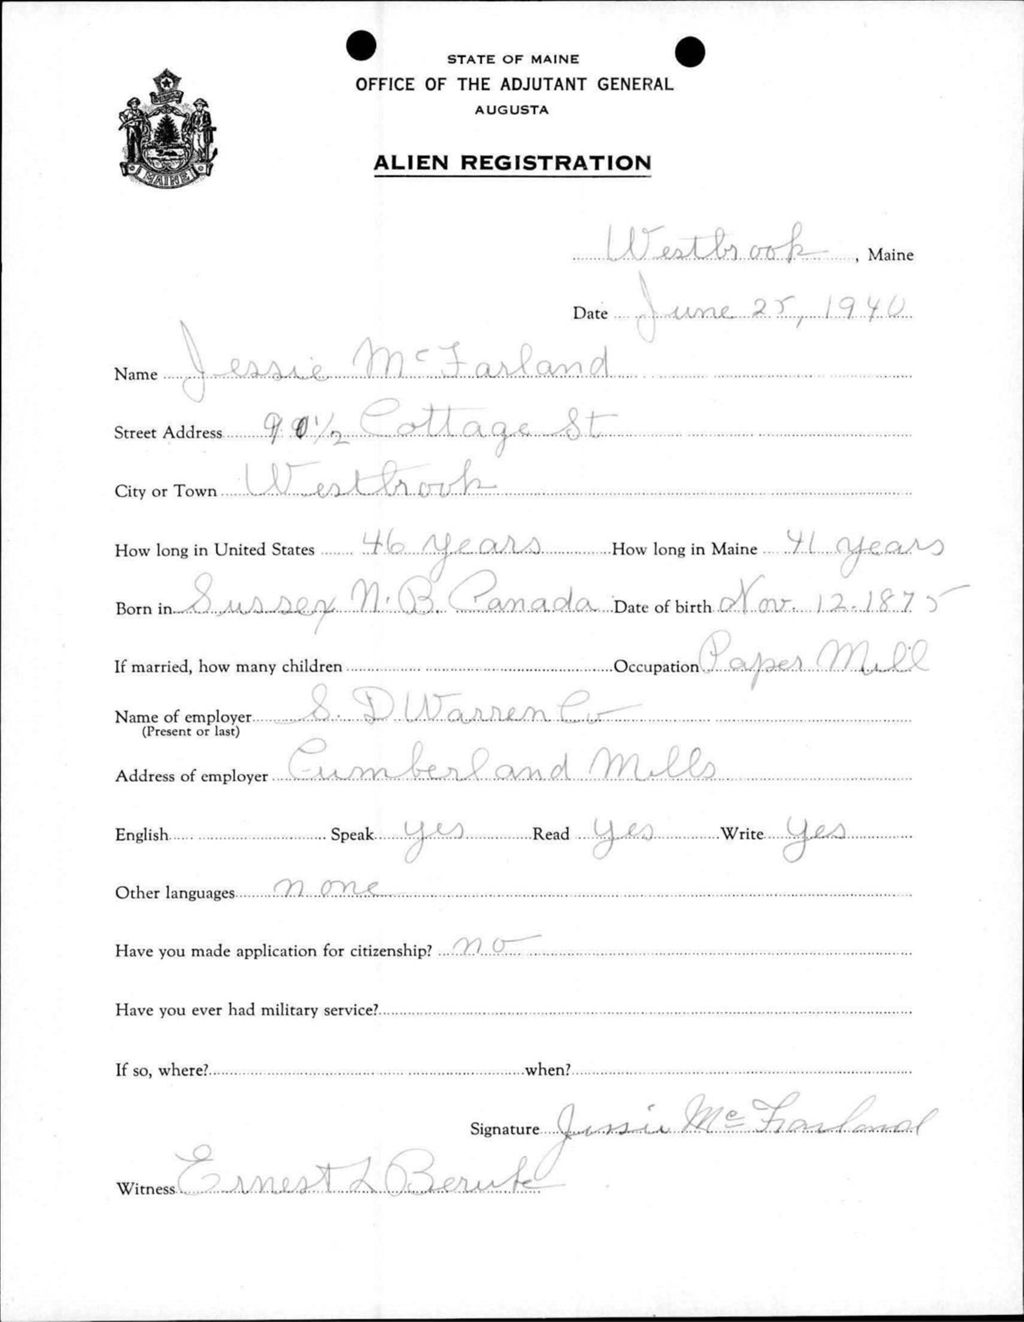 STATE OF MAINE
OFFICE OF THE ADJUTANT GENERAL
AUGUSTA
ALIEN REGISTRATION
MAINE
Westbrook, Maine
Date June 25, 1940
Name Jessie McFarland
Street Address 90 1/2 Cottage St
City or Town Westbrook
How long in United States 46 years How long in Maine 41 years
Born in Sussex N.B. Canada Date of birth Nov. 12. 1875
If married, how many children Occupation Paper Mill
Name of employer S. D Warren Co
(Present or last)
Address of employer Cumberland Mills
English Speak yes Read Yes Write Yes
Other languages none
Have you made application for citizenship? no
Have you ever had military service?
If so, where? when?
Signature Jessie McFarland
Witness Ernest L